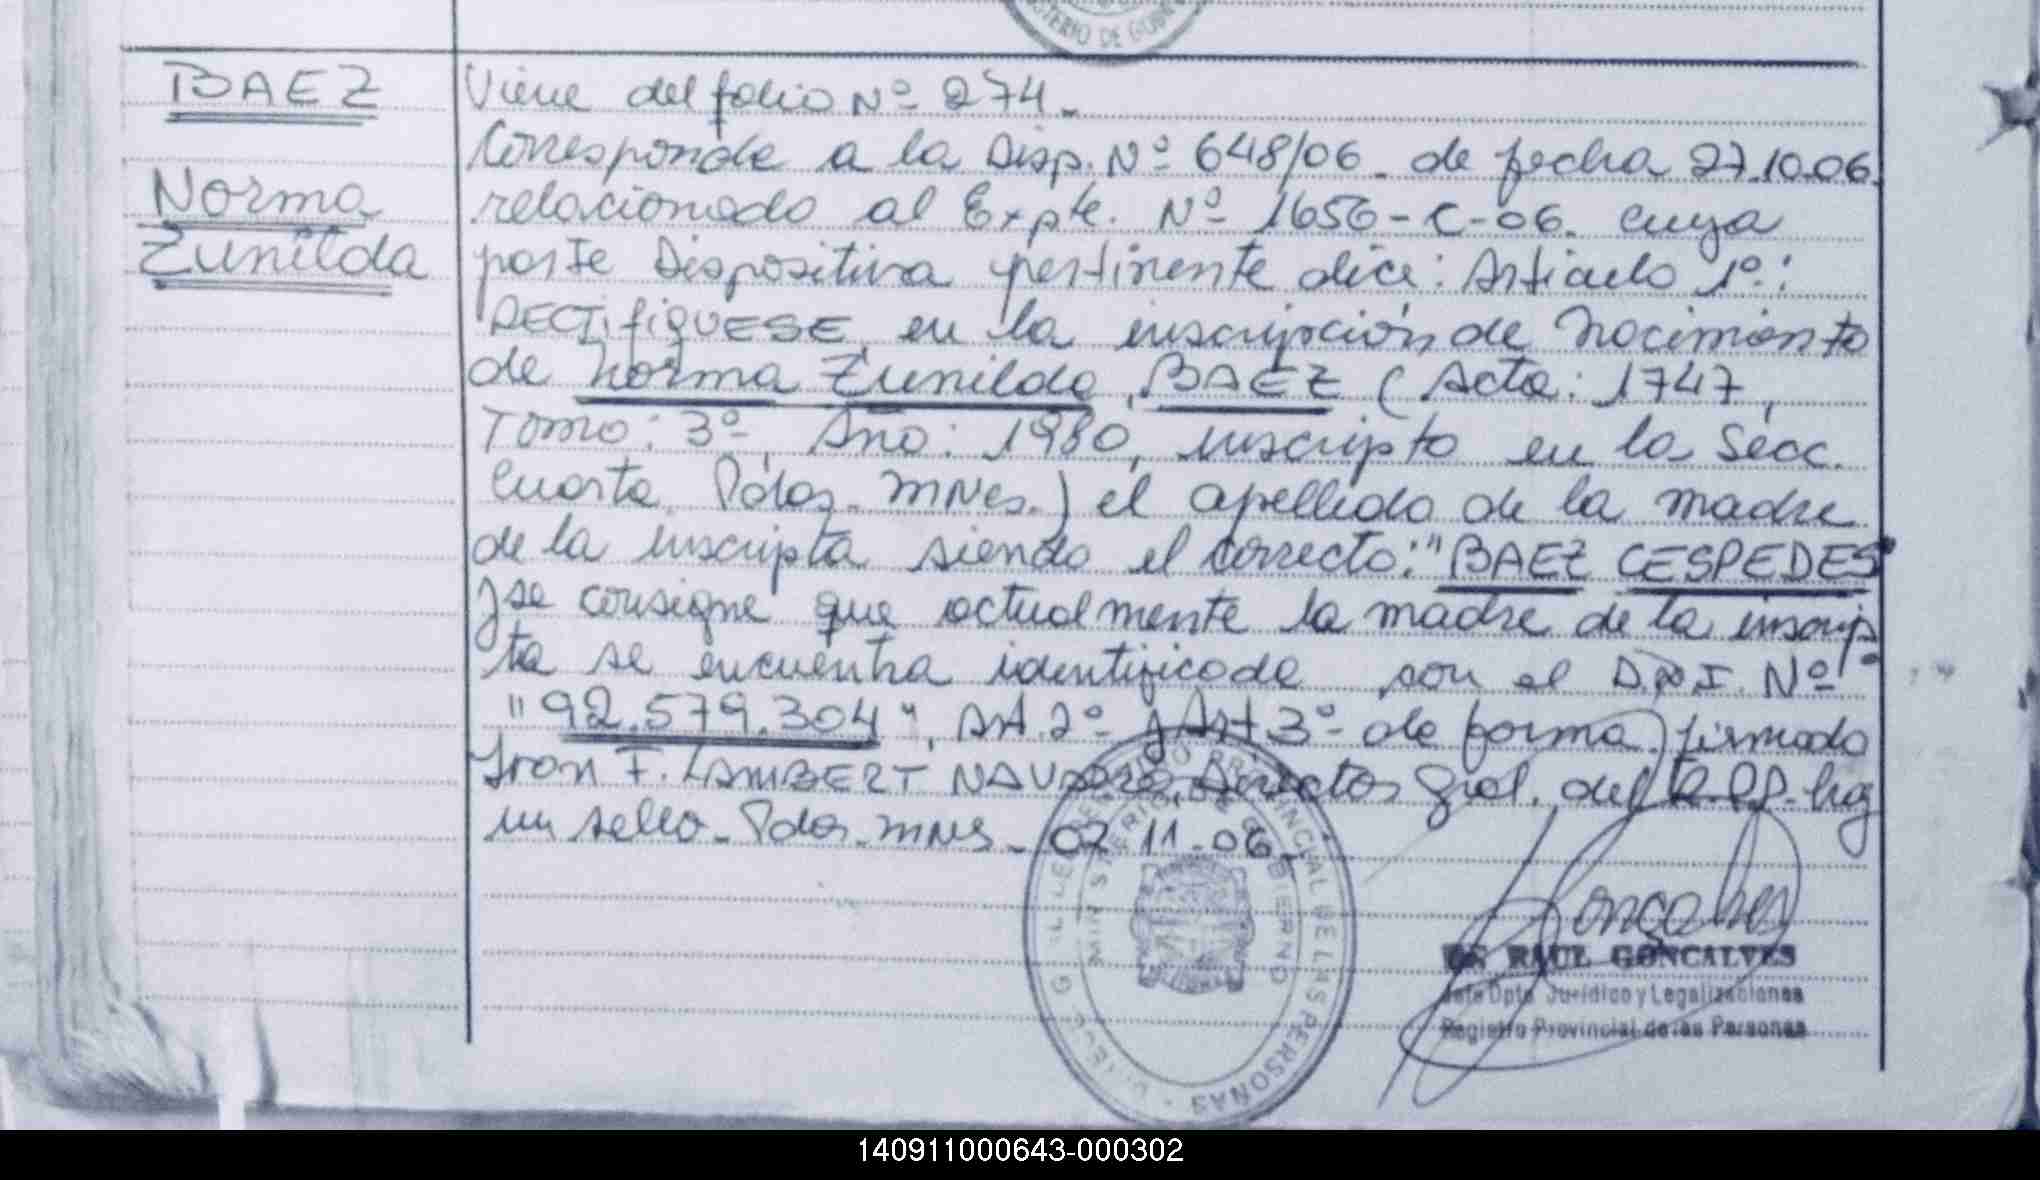 MINISTERIO DE GOBIERNO
BAEZ
Norma
Zunilda
Viene del folio Nº 274.-
Corresponde a la Disp. Nº 648/06. de fecha 27.10.06.
relacionado al Expte. Nº 1656-C-06. cuya
parte Dispositiva pertinente dice: Artículo 1º:
RECTIFIQUESE, en la inscripción de Nacimiento
de Norma Zunilda, BAEZ (Acta: 1747,
Tomo: 3º, Año: 1980, inscripto en la Secc.
Cuarta, Pdas. Mnes.) el apellido de la madre
de la inscripta siendo el correcto: "BAEZ CESPEDES"
y se consigne que actualmente la madre de la inscrip
ta se encuentra identificada con el D.N.I. Nº
"92.579.304", Art. 2º y Art. 3º de forma, firmado
Ivan F. LAMBERT Director Gral. del R.P.P. hay
un sello. Pdas. Mnes. 02.11.06.-
REGISTRO PROVINCIAL DE LAS PERSONAS
MINISTERIO DE GOBIERNO
DR RAUL GONCALVES
Jefe Dpto. Jurídico y Legalizaciones
Registro Provincial de las Personas
140911000643-000302